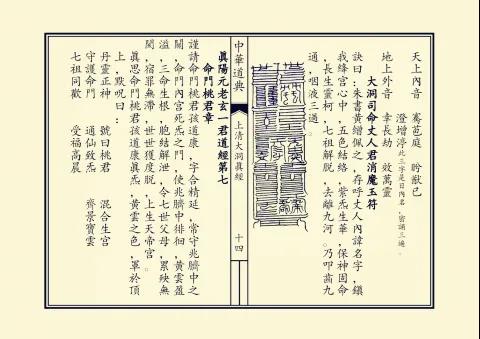 天上內音 騫苞庭 盻猷已
澄增渟此三字是日內名,密誦三遍。
地上外音 幸長劫 效萬靈
大洞司命丈人君消魔玉符
訣曰:朱書黃繒佩之,存呼丈人內諱名字,鎮
我絳宮心中,五色結絡,紫炁生華,保神固命
,長生靈柯,七祖解脫,去離九河。乃叩齒九
通,咽液三過。
中華道典
上清大洞真經
十四
眞陽元老玄一君道經第七
命門桃君章
謹請命門桃君孩道康,字合精延,常守兆臍中之
關,命門內宮死炁之門,使兆臍中徘徊,黃雲盈
溢,三命生根,胞結解泄,令七世父母,累殃無
閡,宿罪無滯,世世獲度脫,上生天帝宮。
真思命門桃君孩道康真炁,黃雲之色,罩於頂
上,默呪曰:
丹靈正神 號曰桃君 混合生宮
守護命門 通仙致炁 齊景寶雲
七祖同歡 受福高晨